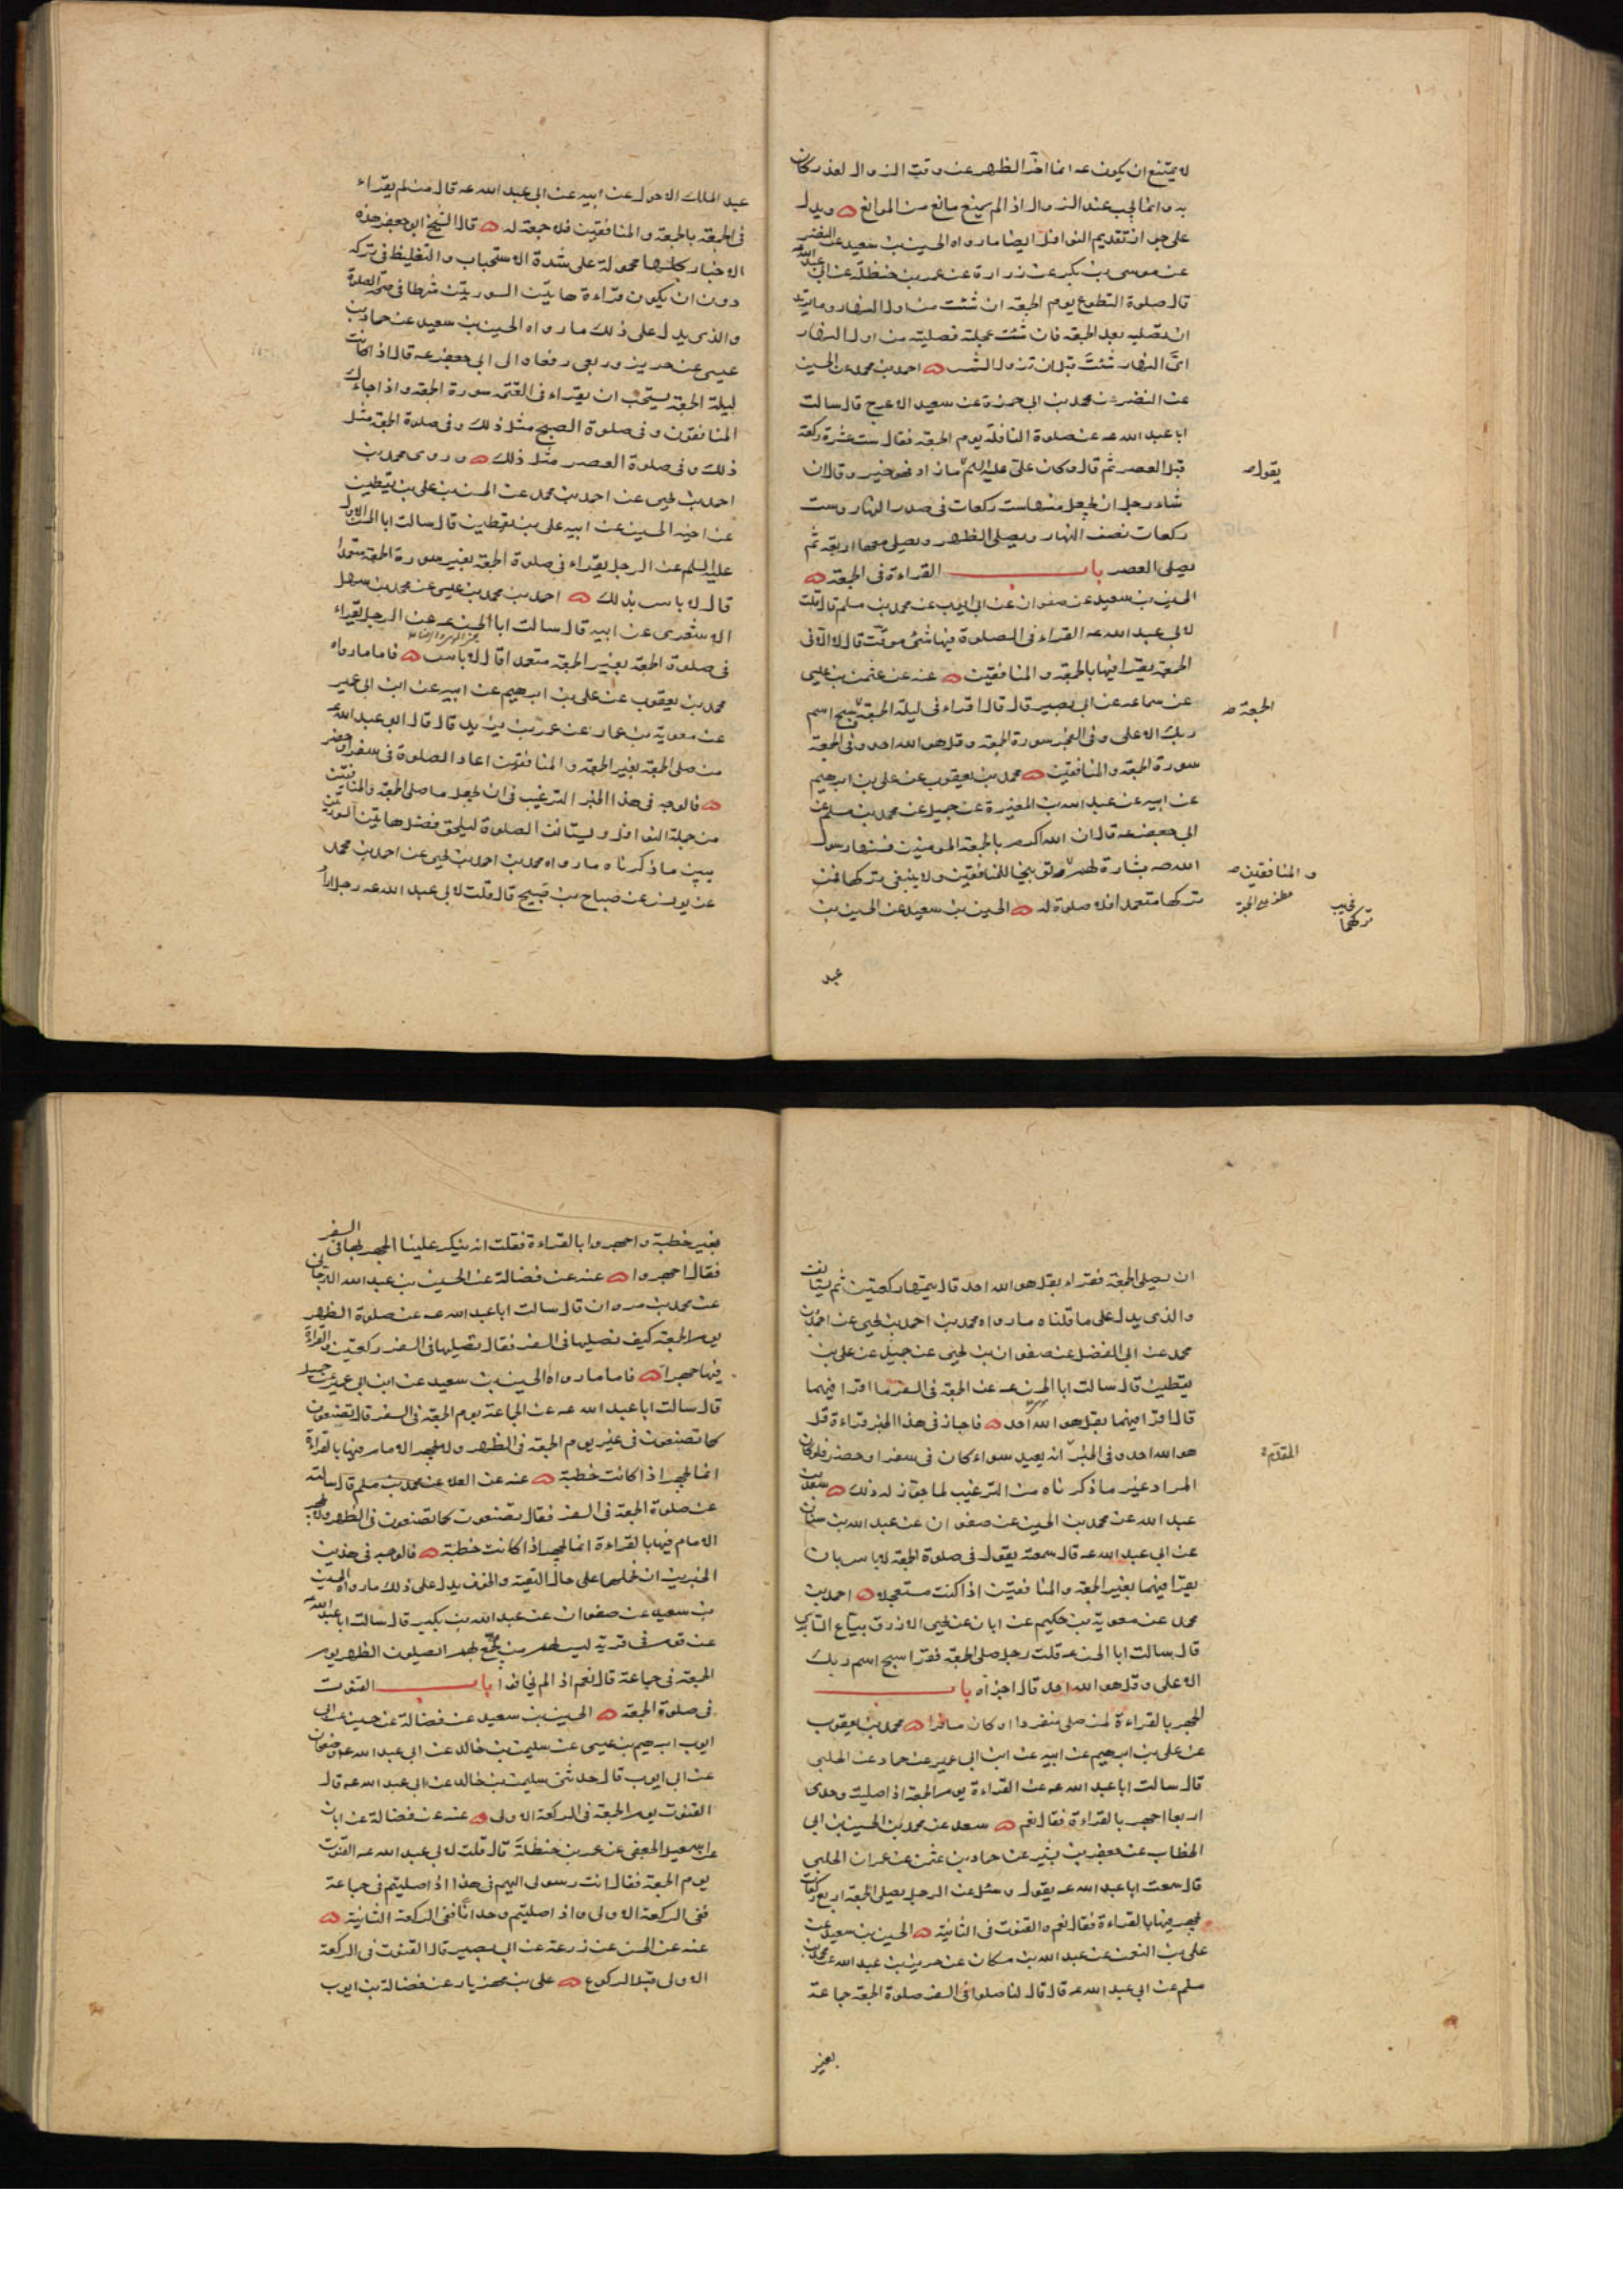 لا يمتنع ان يكون عه انما اخر الظهر عن وقت الزوال لعذر كان
به وانما يجب عند الزوال اذا لم يمنع مانع من الموانع ويدل
على جواز تقديم النوافل ايضا ما رواه الحسين بن سعيد عن النضر
عن موسى بن بكر عن زرارة عن عمر بن حنظلة عن ابى عبد الله
قال صلوة التطوع يوم الجمعة ان شئت من اول النهار وما تريد
ان تصليه بعد الجمعة فان شئت عجلته فصليته من اول النهار
اىّ النهار شئت قبل ان تزول الشمس احمد بن محمد عن الحسين
عن النضر عن محمد بن ابى حمزة عن سعيد الاعرج قال سالت
ابا عبد الله عه عن صلوة النافلة يوم الجمعة فقال ست عشرة ركعة
قبل العصر ثم قال وكان على عليه السلم ما زاد فهو خير وقال ان
يقول
شاء رجل ان يجعل منها ست ركعات فى صدر النهار وست
ركعات نصف النهار ويصلى الظهر ويصلى معها اربعة ثم
يصلى العصر باب القراءة فى الجمعة
الحسين بن سعيد عن صفوان عن ابى ايوب عن محمد بن مسلم قال قلت
لابى عبد الله عه القراءة فى الصلوة فيها شئ موقت قال لا الا فى
الجمعة يقرا فيها بالجمعة والمنافقين عنه عن عثمن بن عيسى
عن سماعه عن ابى بصير قال قال اقراء فى ليلة الجمعة وسبح اسم
الجمعة
ربك الاعلى وفى الفجر سورة الجمعة وقل هو الله احد وفى الجمعة
سورة الجمعة والمنافقين محمد بن يعقوب عن على بن ابرهيم
عن ابيه عن عبد الله بن المغيرة عن جميل عن محمد بن مسلم عن
ابى جعفر عه قال ان الله اكرم بالجمعة المومنين فسنها رسول
الله صه بشارة لهم وتوبيخا للمنافقين ولا ينبغى تركها فمن
والمنافقين
تركها متعمدا فلا صلوة له الحسين بن سعيد عن الحسين بن
تركهما
عبد
عبد الملك الاحول عن ابيه عن ابى عبد الله عه قال من لم يقراء
فى الجمعة بالجمعة والمنافقين فلا جمعة له قال الشيخ ابو جعفر هذه
الاخبار كلها محمولة على شدة الاستحباب والتغليظ فى تركه
دون ان يكون قراءة هاتين السورتين شرطا فى صحة الصلوة
والذى يدل على ذلك ما رواه الحسين بن سعيد عن حماد بن
عيسى عن حريز وربعى رفعاه الى ابى جعفر عه قال اذا كانت
ليلة الجمعة يستحب ان يقراء فى العتمة سورة الجمعة واذا جاءك
المنافقون وفى صلوة الصبح مثل ذلك وفى صلوة الجمعة مثل
ذلك وفى صلوة العصر مثل ذلك وروى محمد بن
احمد بن يحيى عن احمد بن محمد عن الحسن بن على بن يقطين
عن اخيه الحسين عن ابيه على بن يقطين قال سالت ابا الحسن الاول
عليه السلم عن الرجل يقراء فى صلوة الجمعة بغير سورة الجمعة متعمدا
قال لا باس بذلك احمد بن محمد بن عيسى عن محمد بن سهل
الاشعرى عن ابيه قال سالت ابا الحسن عه عن الرجل يقراء
فى صلوة الجمعة بغير الجمعة متعمدا قال لا باس فاما ما رواه
محمد بن يعقوب عن على بن ابرهيم عن ابيه عن ابن ابى عمير
عن معوية بن عمار عن عمر بن يزيد قال قال ابو عبد الله عه
من صلى الجمعة بغير الجمعة والمنافقين اعاد الصلوة فى سفر او حضر
فالوجه فى هذا الخبر الترغيب فى ان يجعل ما صلى الجمعة والمنافقين
من جملة النوافل ويستانف الصلوة ليلحق فضل هاتين السورتين
يبين ما ذكرناه ما رواه محمد بن احمد بن يحيى عن احمد بن محمد
عن يونس عن صباح بن صبيح قال قلت لابى عبد الله عه رجل اراد
ان يصلى الجمعة فقراء بقل هو الله احد قال يتمها ركعتين ثم يستانف
والذى يدل على ما قلناه ما رواه محمد بن احمد بن يحيى عن احمد بن
محمد عن ابى الفضل عن صفوان بن يحيى عن جميل عن على بن
يقطين قال سالت ابا الحسن عه عن الجمعة فى السفر ما اقرا فيهما
قال اقرا فيهما بقل هو الله احد فاجاز فى هذا الخبر قراءة قل
هو الله احد وفى الخبر انه يعيد سواء كان فى سفر او حضر فلو كان
المقدم
المراد غير ما ذكرناه من الترغيب لما جوّز له ذلك سعد بن
عبد الله عن محمد بن الحسين عن صفوان عن عبد الله بن سنان
عن ابى عبد الله عه قال سمعته يقول فى صلوة الجمعة لا باس بان
يقرا فيهما بغير الجمعة والمنافقين اذا كنت مستعجلا احمد بن
محمد عن معوية بن حكيم عن ابان عن يحيى الازرق بياع السابرى
قال سالت ابا الحسن عه قلت رجل صلى الجمعة فقرا سبح اسم ربك
الاعلى وقل هو الله احد قال اجزاه باب
الجهر بالقراءة لمن صلى منفردا او كان مسافرا محمد بن يعقوب
عن على بن ابرهيم عن ابيه عن ابن ابى عمير عن حماد عن الحلبى
قال سالت ابا عبد الله عه عن القراءة يوم الجمعة اذا صليت وحدى
اربعا اجهر بالقراءة فقال نعم سعد عن محمد بن الحسين بن ابى
الخطاب عن جعفر بن بشير عن حماد بن عثمن عن عمران الحلبى
قال سمعت ابا عبد الله عه يقول وسئل عن الرجل يصلى الجمعة اربع ركعات
يجهر فيها بالقراءة فقال نعم والقنوت فى الثانية الحسين بن سعيد عن
على بن النعمن عن عبد الله بن مسكان عن حريز بن عبد الله عن محمد بن
مسلم عن ابى عبد الله عه قال قال لنا صلوا فى السفر صلوة الجمعة جماعة
بغير
بغير خطبة واجهروا بالقراءة فقلت انه ينكر علينا الجهر بها فى السفر
فقال اجهروا عنه عن فضالة عن الحسين بن عبد الله الارجانى
عن محمد بن مروان قال سالت ابا عبد الله عه عن صلوة الظهر
يوم الجمعة كيف نصليها فى السفر فقال تصليها فى السفر ركعتين والقراءة
فيها جهرا فاما ما رواه الحسين بن سعيد عن ابن ابى عمير عن جميل
قال سالت ابا عبد الله عه عن الجماعة يوم الجمعة فى السفر قال تصنعون
كما تصنعون فى غير يوم الجمعة فى الظهر ولا يجهر الامام فيها بالقراءة
انما يجهر اذا كانت خطبة عنه عن العلا عن محمد بن مسلم قال سالته
عن صلوة الجمعة فى السفر فقال تصنعون كما تصنعون فى الظهر ولا يجهر
الامام فيها بالقراءة انما يجهر اذا كانت خطبة فالوجه فى هذين
الخبرين ان نحملهما على حال التقية والخوف يدل على ذلك ما رواه الحسين
بن سعيد عن صفوان عن عبد الله بن بكير قال سالت ابا عبد الله
عن قوم فى قرية ليس لهم من يجمع بهم ايصلون الظهر يوم
الجمعة فى جماعة قال نعم اذا لم يخافوا باب القنوت
فى صلوة الجمعة الحسين بن سعيد عن فضالة عن حسين عن ابى
ايوب ابرهيم بن عيسى عن سليمن بن خالد عن ابى عبد الله عه وصفوان
عن ابى ايوب قال حدثنى سليمن بن خالد عن ابى عبد الله عه قال
القنوت يوم الجمعة فى الركعة الاولى عنه عن فضالة عن ابان
عن اسمعيل الجعفى عن عمر بن حنظلة قال قلت لابى عبد الله عه القنوت
يوم الجمعة فقال انت رسولى اليهم فى هذا اذا صليتم فى جماعة
ففى الركعة الاولى واذا صليتم وحدانا ففى الركعة الثانية
عنه عن الحسن عن زرعة عن ابى بصير قال القنوت فى الركعة
الاولى قبل الركوع على بن مهزيار عن فضالة بن ايوب